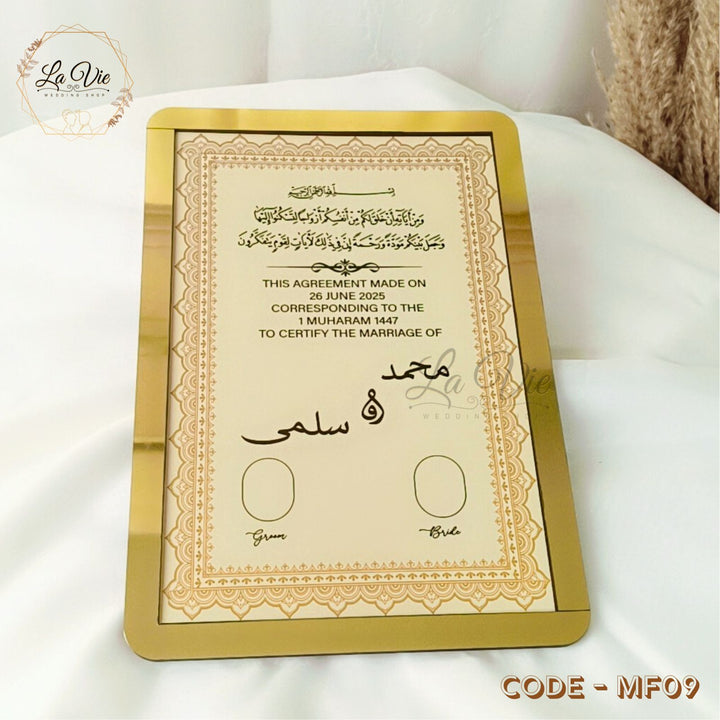 La Vie
WEDDING SHOP
بسم الله الرحمن الرحيم
وَمِنْ آيَاتِهِ أَنْ خَلَقَ لَكُم مِّنْ أَنفُسِكُمْ أَزْوَاجًا لِّتَسْكُنُوا إِلَيْهَا
وَجَعَلَ بَيْنَكُم مَّوَدَّةً وَرَحْمَةً إِنَّ فِي ذَٰلِكَ لَآيَاتٍ لِّقَوْمٍ يَتَفَكَّرُونَ
THIS AGREEMENT MADE ON
26 JUNE 2025
CORRESPONDING TO THE
1 MUHARAM 1447
TO CERTIFY THE MARRIAGE OF
محمد
و
سلمى
La Vie
WEDDING SHOP
Groom
Bride
CODE - MF09